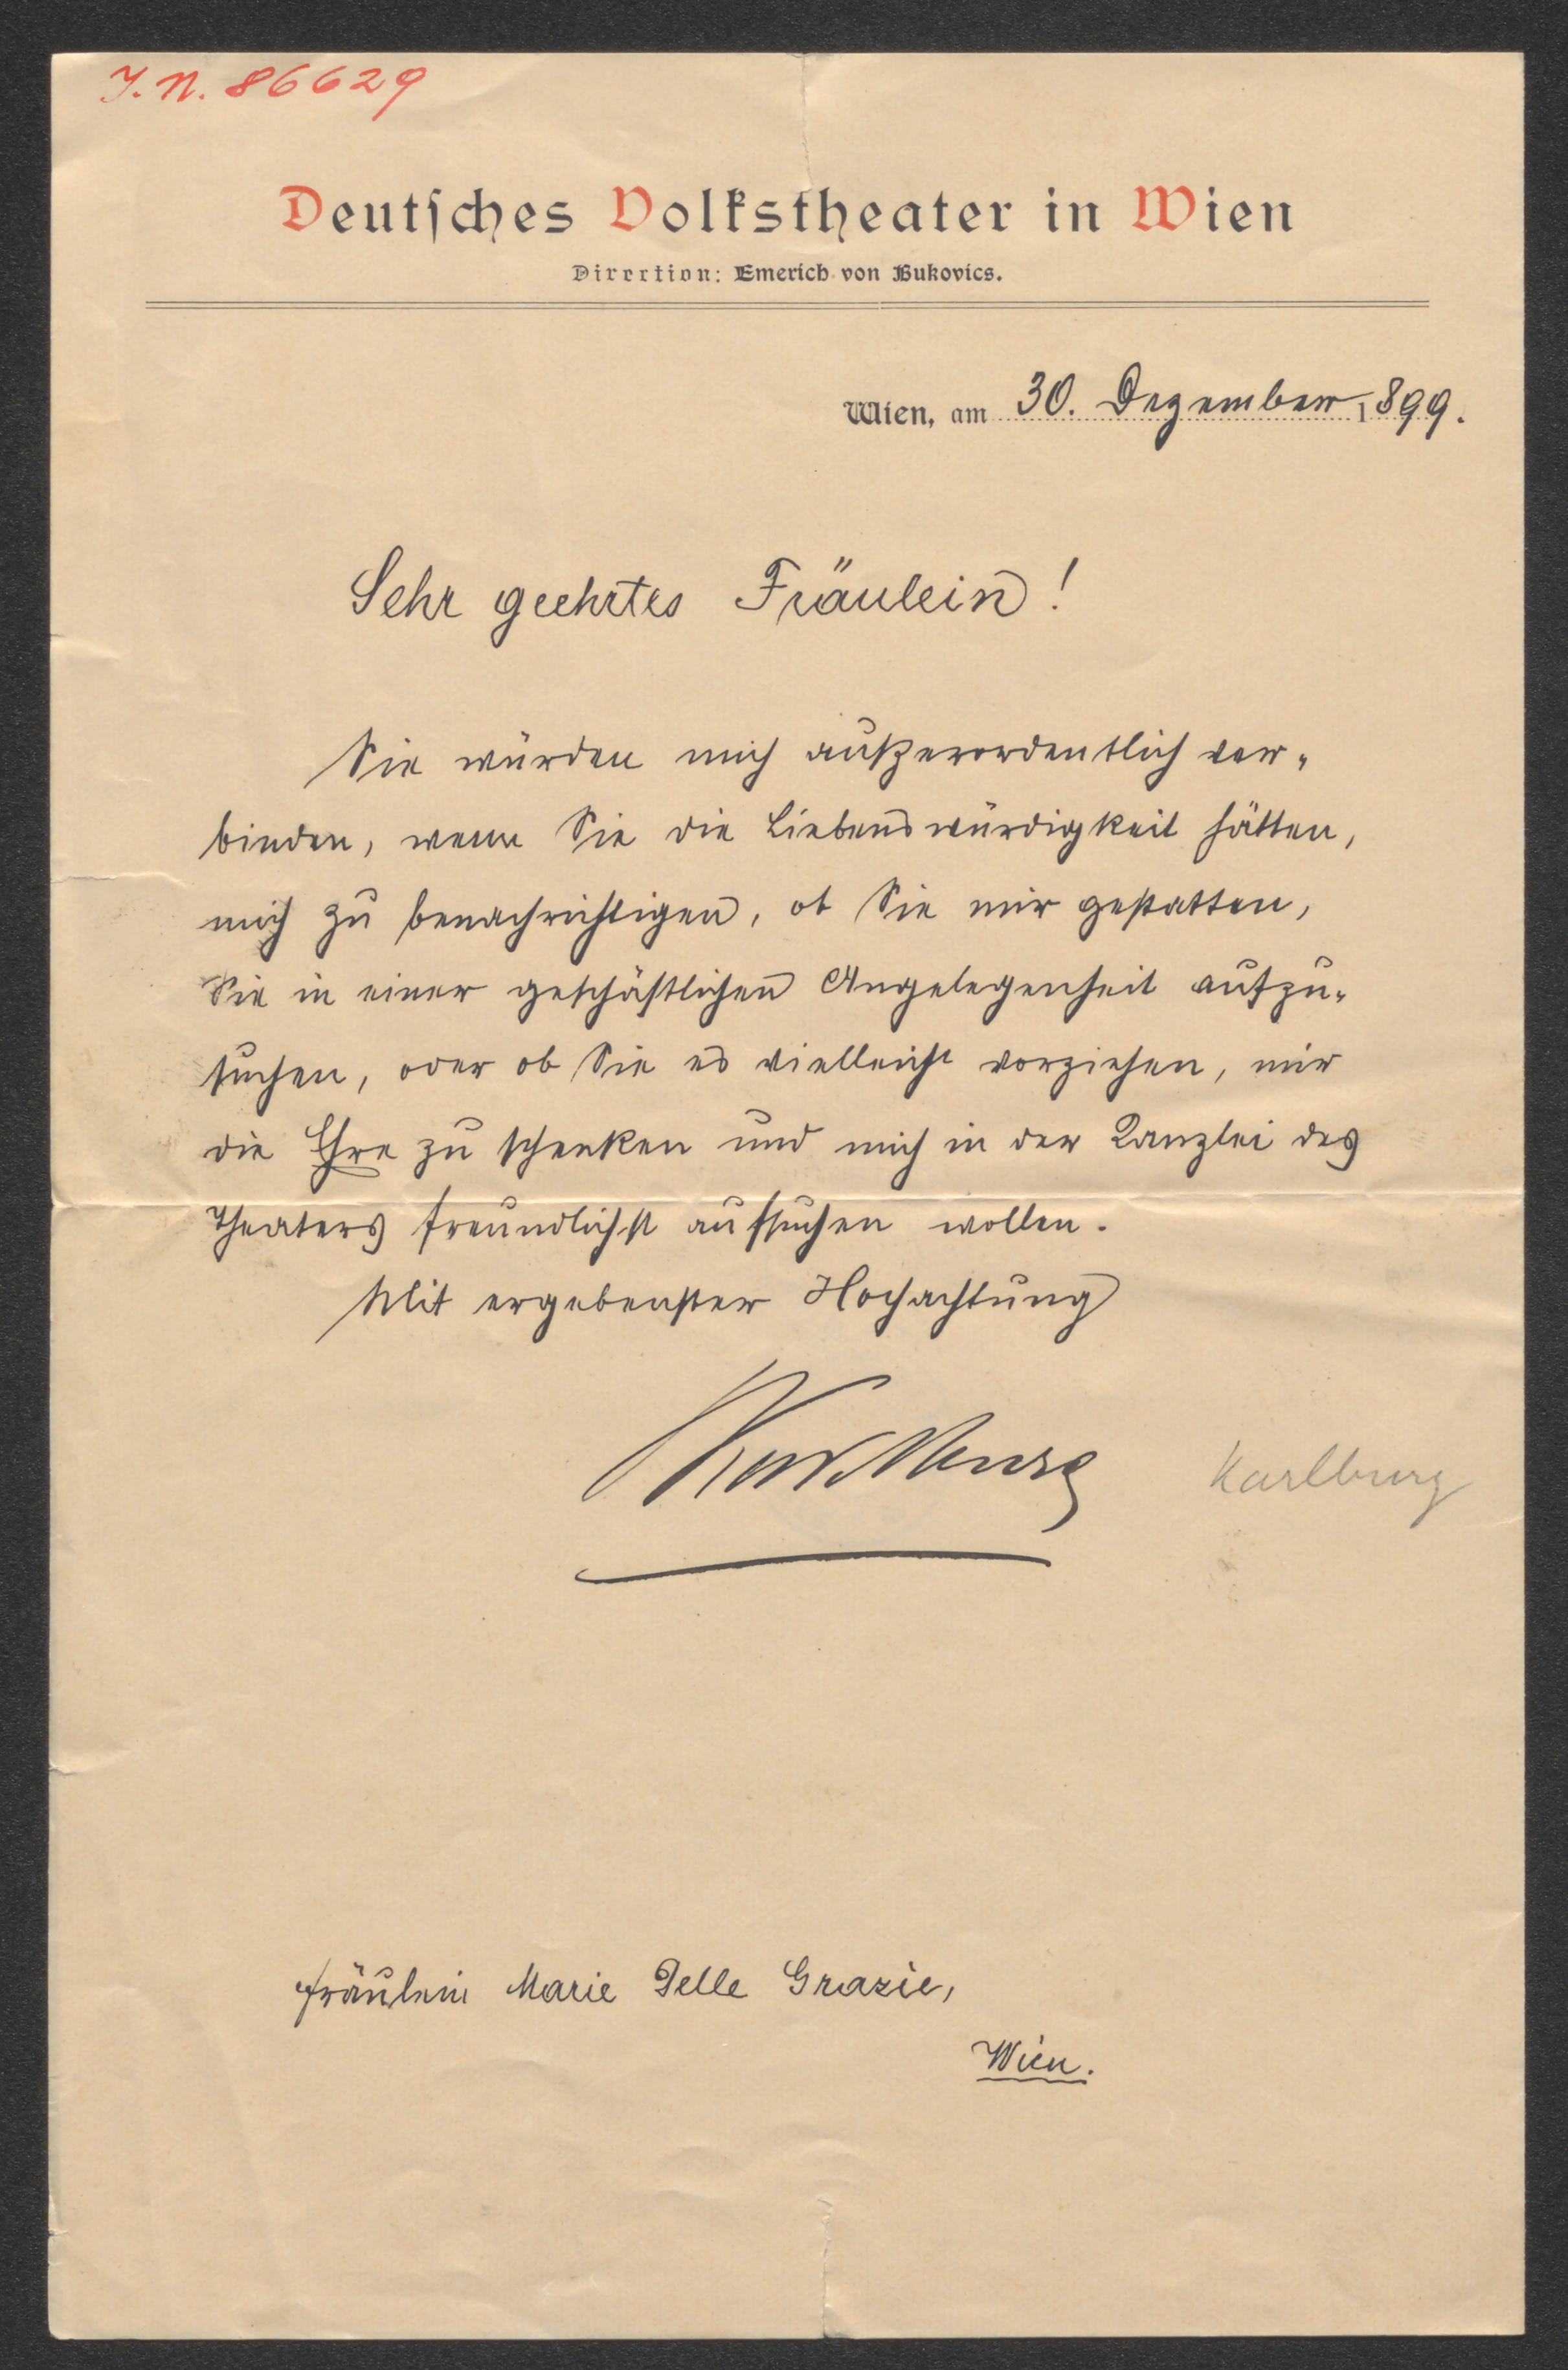 I. N. 86629
Deutsches Volkstheater in Wien
Direction: Emerich von Bukovics.
Wien, am 30. Dezember 1899.
Sehr geehrtes Fräulein!
Sie würden mich außerordentlich ver-
binden, wenn Sie die Liebenswürdigkeit hätten,
mich zu benachrichtigen, ob Sie mir gestatten,
Sie in einer geschäftlichen Angelegenheit aufzu-
suchen, oder ob Sie es vielleicht vorziehen, mir
die Ehre zu schenken und mich in der Kanzlei des
Theaters freundlichst aufsuchen wollen.
Mit ergebenster Hochachtung
Karlburg
Karlburg
Fräulein Marie Delle Grazie,
Wien.